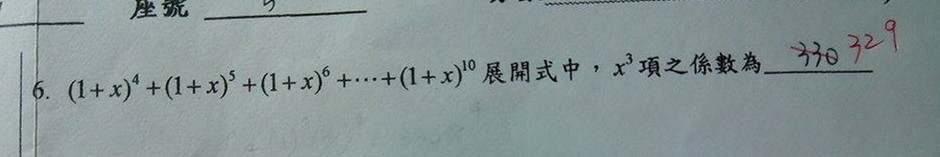 座號 5
6. (1+x)⁴+(1+x)⁵+(1+x)⁶+⋯+(1+x)¹⁰ 展開式中，x³項之係數為 330 329